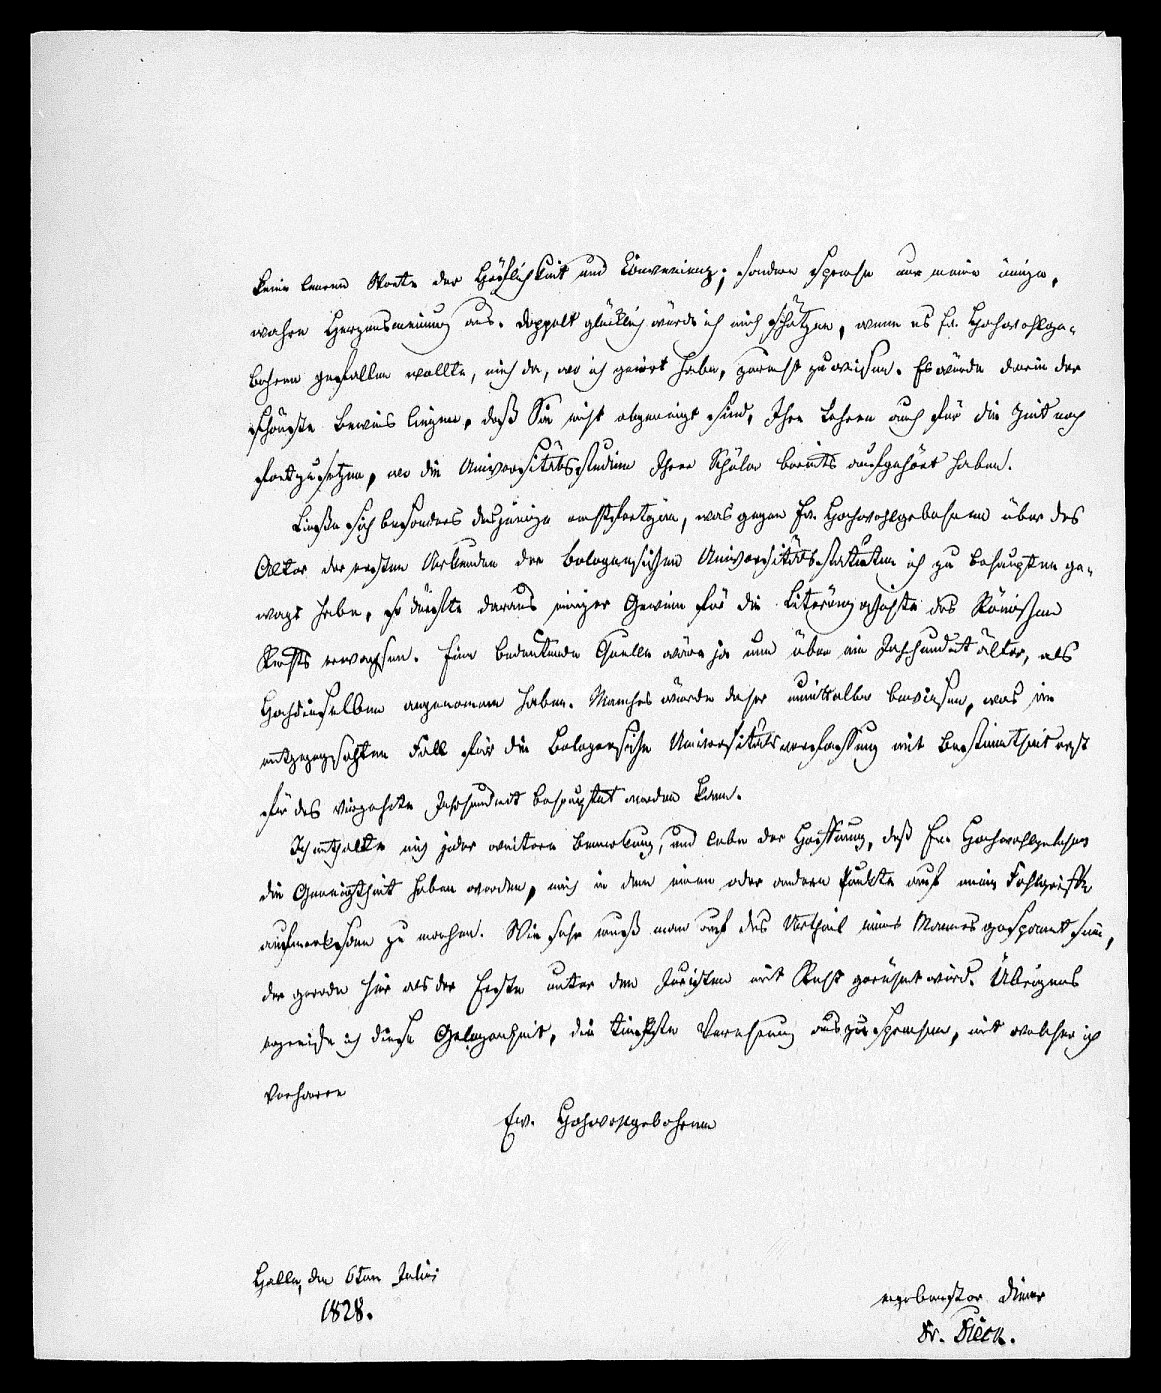 keine leeren Worte der Höflichkeit und Convenienz; sondern spreche nur meine innige,
wahre Herzensmeinung aus. Doppelt glücklich würde ich mich schätzen, wenn es Ew. Hochwohlge-
bohren gefallen wollte, mich da, wo ich geirrt habe, zurecht zu weisen. Es würde darin der
schönste Beweis liegen, daß Sie nicht abgeneigt sind, Ihre Lehren auch für die Zeit noch
fortzusetzen, wo die Universitätsstudien Ihrer Schüler bereits aufgehört haben.
Ließe sich besonders dasjenige rechtfertigen, was gegen Ew. Hochwohlgebohrnen über das
Alter der ersten Urkunden der bolognesischen Universitätsstatuten ich zu behaupten ge-
wagt habe, so dürfte daraus einiger Gewinn für die Literärgeschichte des Römischen
Rechts erwachsen. Eine bedeutende Quelle wäre ja nun über ein Jahrhundert älter, als
Hochdieselben angenommen haben. Manches würde daher unmittelbar bewiesen, was im
entgegengesetzten Fall für die Bolognesische Universitätsverfassung mit Bestimmtheit erst
für das vierzehnte Jahrhundert behauptet werden kann.
Ich enthalte mich jeder weitern Bemerkung, und lebe der Hoffnung, daß Ew. Hochwohlgebohren
die Geneigtheit haben werden, mich in dem einen oder andern Punkte auf meine Fehlgriffe
aufmerksam zu machen. Wie sehr muß man auf das Urtheil eines Mannes gespannt sein,
der gerade hier als der Erste unter den Juristen mit Recht gerühmt wird. Übrigens
ergreife ich diese Gelegenheit, die tiefste Verehrung auszusprechen, mit welcher ich
verharre
Ew. Hochwohlgebohrnen
Halle, den 6ten Julius
1828.
ergebenster Diener
Dr. Dieck.